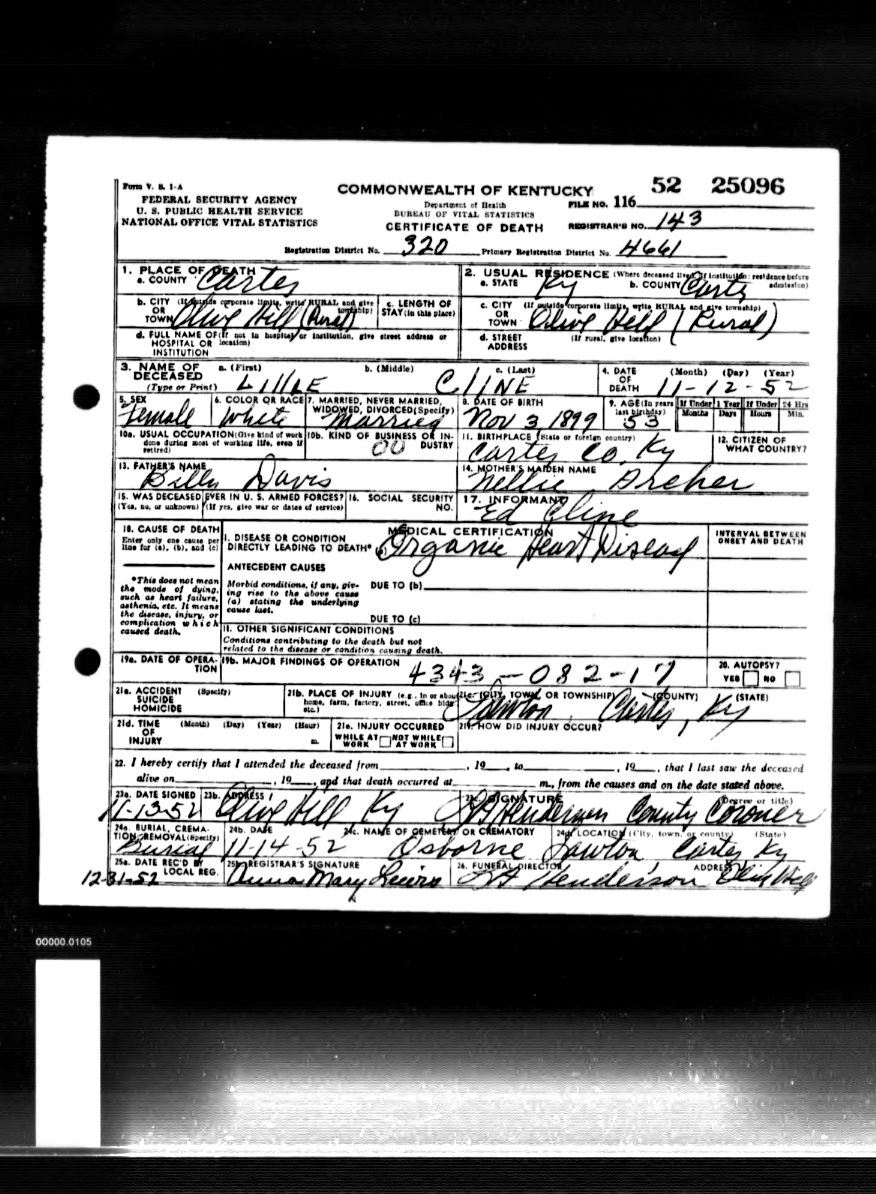 Form V. S. 1-A
FEDERAL SECURITY AGENCY
U. S. PUBLIC HEALTH SERVICE
NATIONAL OFFICE VITAL STATISTICS
COMMONWEALTH OF KENTUCKY
Department of Health
BUREAU OF VITAL STATISTICS
CERTIFICATE OF DEATH
52 25096
FILE NO. 116
REGISTRAR'S NO. 143
Registration District No. 320 Primary Registration District No. 4661
1. PLACE OF DEATH
a. COUNTY Carter
2. USUAL RESIDENCE (Where deceased lived. If institution: residence before admission)
a. STATE Ky b. COUNTY Carter
b. CITY OR TOWN (If outside corporate limits, write RURAL and give township) Olive Hill (Rural)
c. LENGTH OF STAY (in this place)
c. CITY OR TOWN (If outside corporate limits, write RURAL and give township) Olive Hill (Rural)
d. FULL NAME OF HOSPITAL OR INSTITUTION (If not in hospital or institution, give street address or location)
d. STREET ADDRESS (If rural, give location)
3. NAME OF DECEASED (Type or Print)
a. (First) LILLIE b. (Middle) c. (Last) CLINE
4. DATE OF DEATH (Month) (Day) (Year) 11-12-52
5. SEX Female
6. COLOR OR RACE White
7. MARRIED, NEVER MARRIED, WIDOWED, DIVORCED (Specify) Married
8. DATE OF BIRTH Nov 3 1899
9. AGE (In years last birthday) 53
If Under 1 Year Months Days
If Under 24 Hrs Hours Min.
10a. USUAL OCCUPATION (Give kind of work done during most of working life, even if retired)
10b. KIND OF BUSINESS OR INDUSTRY 00
11. BIRTHPLACE (State or foreign country) Carter Co, Ky
12. CITIZEN OF WHAT COUNTRY?
13. FATHER'S NAME Billy Davis
14. MOTHER'S MAIDEN NAME Nellie Archer
15. WAS DECEASED EVER IN U. S. ARMED FORCES? (Yes, no, or unknown) (If yes, give war or dates of service)
16. SOCIAL SECURITY NO.
17. INFORMANT Ed Cline
18. CAUSE OF DEATH
Enter only one cause per line for (a), (b), and (c)
*This does not mean the mode of dying, such as heart failure, asthenia, etc. It means the disease, injury, or complication which caused death.
MEDICAL CERTIFICATION
I. DISEASE OR CONDITION DIRECTLY LEADING TO DEATH* (a) Organic Heart Disease
INTERVAL BETWEEN ONSET AND DEATH
ANTECEDENT CAUSES
Morbid conditions, if any, giving rise to the above cause (a) stating the underlying cause last.
DUE TO (b)
DUE TO (c)
II. OTHER SIGNIFICANT CONDITIONS
Conditions contributing to the death but not related to the disease or condition causing death.
19a. DATE OF OPERATION
19b. MAJOR FINDINGS OF OPERATION
4343-082-17
20. AUTOPSY? YES NO
21a. ACCIDENT SUICIDE HOMICIDE (Specify)
21b. PLACE OF INJURY (e.g., in or about home, farm, factory, street, office bldg., etc.)
21c. (CITY, TOWN, OR TOWNSHIP) (COUNTY) (STATE)
Lawton, Carter, Ky
21d. TIME OF INJURY (Month) (Day) (Year) (Hour) m.
21e. INJURY OCCURRED WHILE AT WORK NOT WHILE AT WORK
21f. HOW DID INJURY OCCUR?
22. I hereby certify that I attended the deceased from , 19 , to , 19 , that I last saw the deceased
alive on , 19 , and that death occurred at m., from the causes and on the date stated above.
23a. DATE SIGNED 11-13-52
23b. ADDRESS Olive Hill Ky
23c. SIGNATURE (Degree or title) Henderson County Coroner
24a. BURIAL, CREMATION, REMOVAL (Specify) Burial
24b. DATE 11-14-52
24c. NAME OF CEMETERY OR CREMATORY Osborne
24d. LOCATION (City, town, or county) (State) Lawton, Carter, Ky
25a. DATE REC'D BY LOCAL REG. 12-31-52
25b. REGISTRAR'S SIGNATURE Anna Mary Lewis
26. FUNERAL DIRECTOR Henderson, ADDRESS Olive Hill
00000.0105